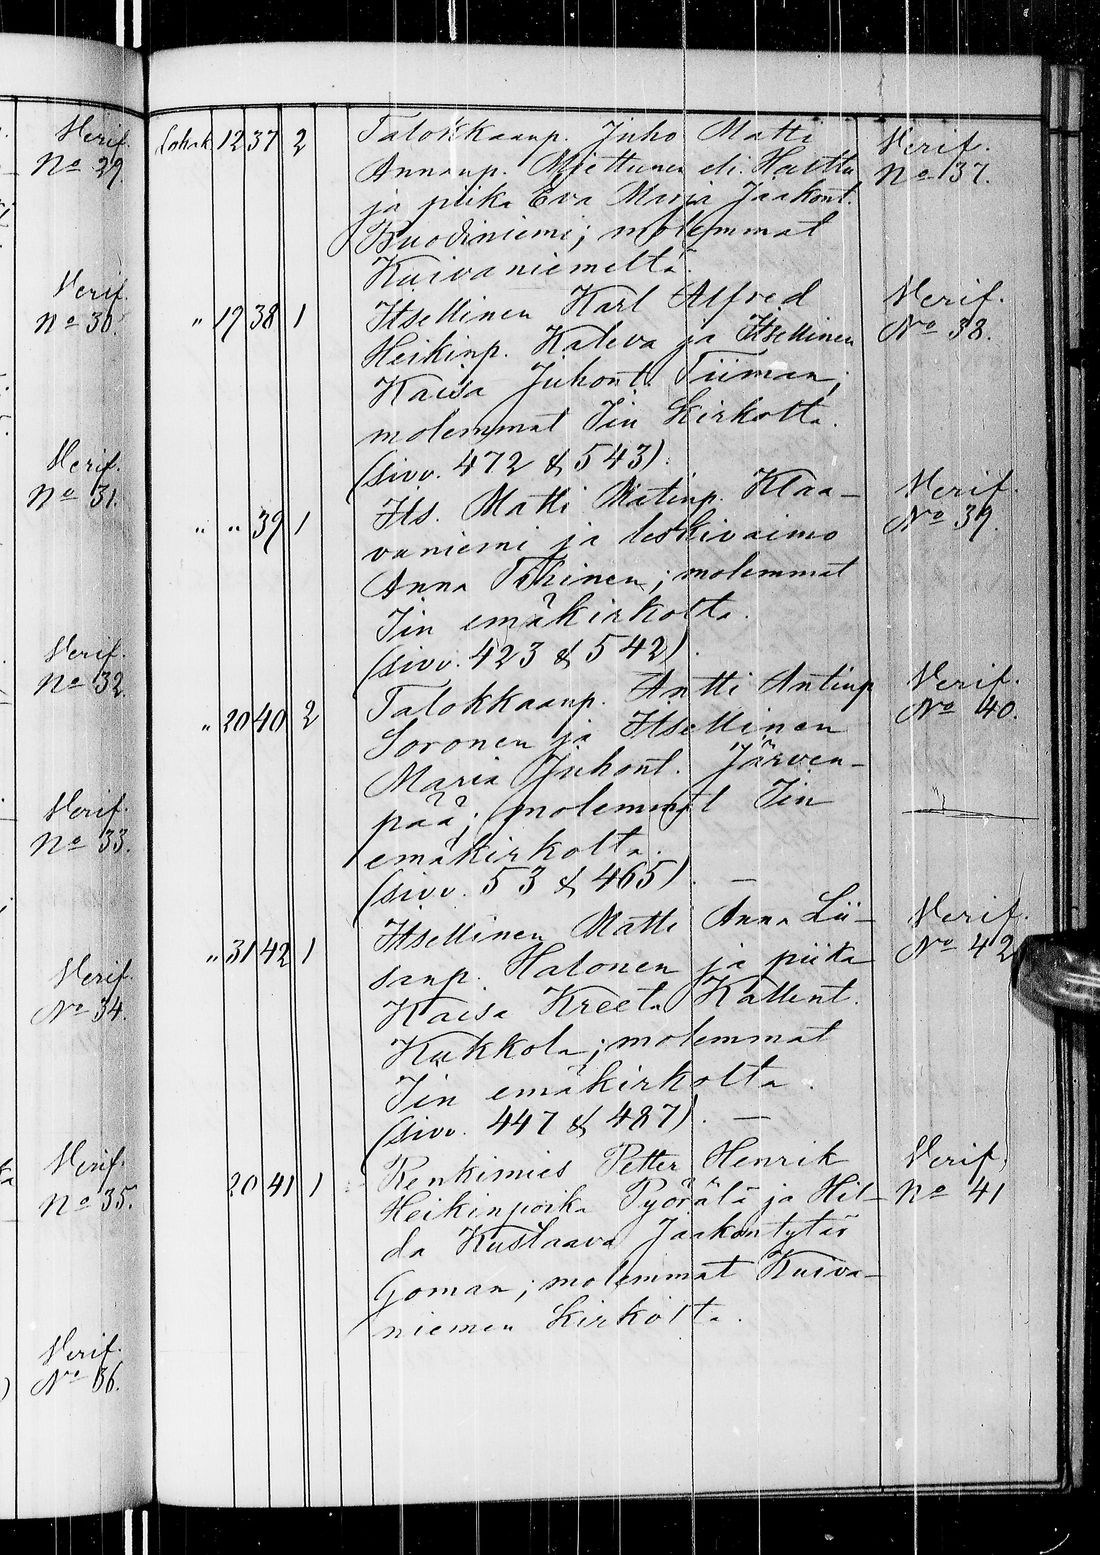 Verif.
No 29.
Verif.
No 30.
Verif.
No 31.
Verif.
No 32.
Verif.
No 33.
Verif.
No 34.
Verif.
No 35.
Verif.
No 36.
Lokak 12 37 2 Talokkaanp. Juho Matti Verif.
Annanp. Miettunen eli Hattu No 37.
ja piika Eva Maria Jaakont.
Ruodiniemi; molemmat
Kuivaniemeltä.
" 19 38 1 Itsellinen Karl Alfred Verif.
Heikinp. Kaleva ja Itsellinen No 38.
Kaisa Juhont. Tiiman;
molemmat Iin kirkolta.
(sivv. 472 & 543).
" " 39 1 Its. Matti Matinp. Klaa- Verif.
vuniemi ja leskivaimo No 39.
Anna Tihinen; molemmat
Iin emäkirkolta.
(sivv. 423 & 542).
" 20 40 2 Talokkaanp. Antti Antinp Verif.
Soronen ja Itsellinen No 40.
Maria Juhont. Järven-
pää; molemmat Iin "
emäkirkolta.
(sivv. 53 & 465). —
" 31 42 1 Itsellinen Matti Anna Lii- Verif.
sanp. Halonen ja piika No 42
Kaisa Kreeta Kallent.
Kukkola; molemmat
Iin emäkirkolta.
(sivv. 447 & 487). —
20 41 1 Renkimies Petter Henrik Verif.
Heikinpoika Pyörälä ja Hil- No 41
da Kustaava Jaakontytär
Goman; molemmat Kuiva-
niemen kirkolta.